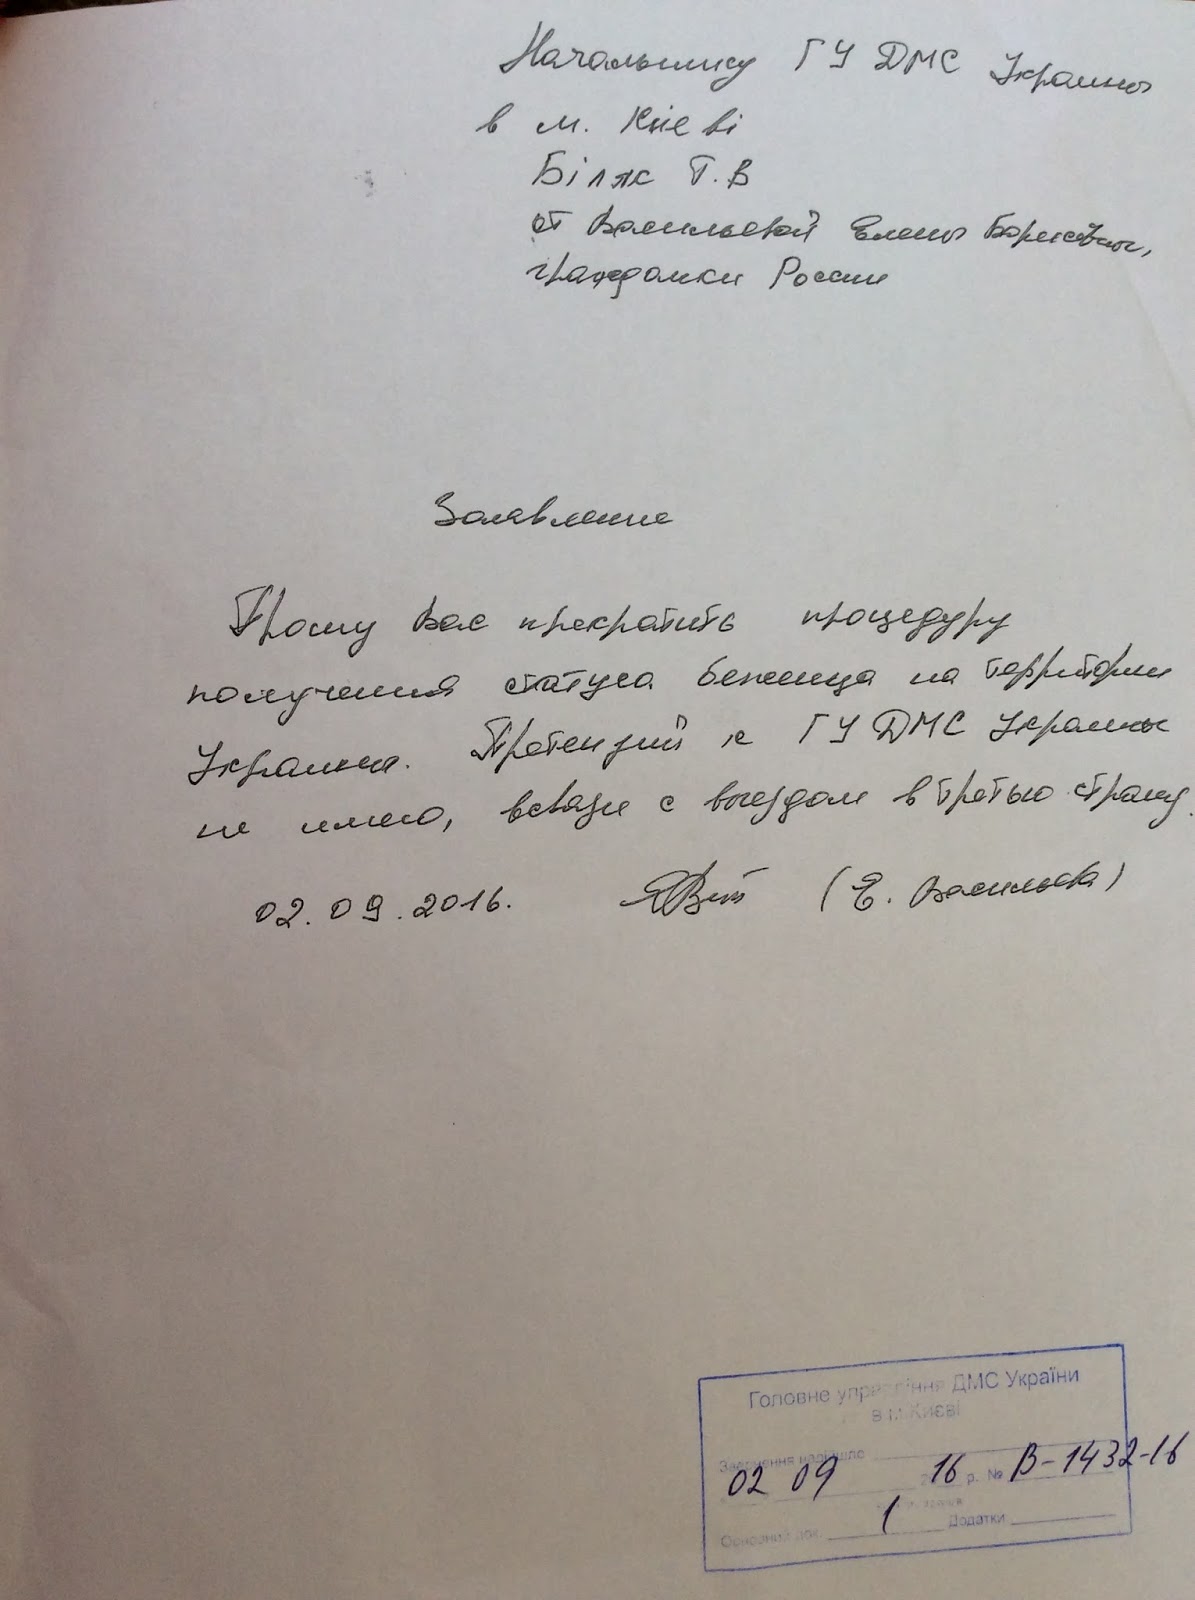 Начальнику ГУ ДМС Украины
в м. Києві
Біляк Т.В
от Васильевой Елены Борисовны,
гражданки России
Заявление
Прошу Вас прекратить процедуру
получения статуса беженца на территории
Украины. Претензий к ГУ ДМС Украины
не имею, всвязи с выездом в третью страну.
02.09.2016. (Е. Васильева)
Головне управління ДМС України
в м. Києві
Звернення надійшло
02 09 16 р. № В-1432-16
Основний док. 1 Додатки